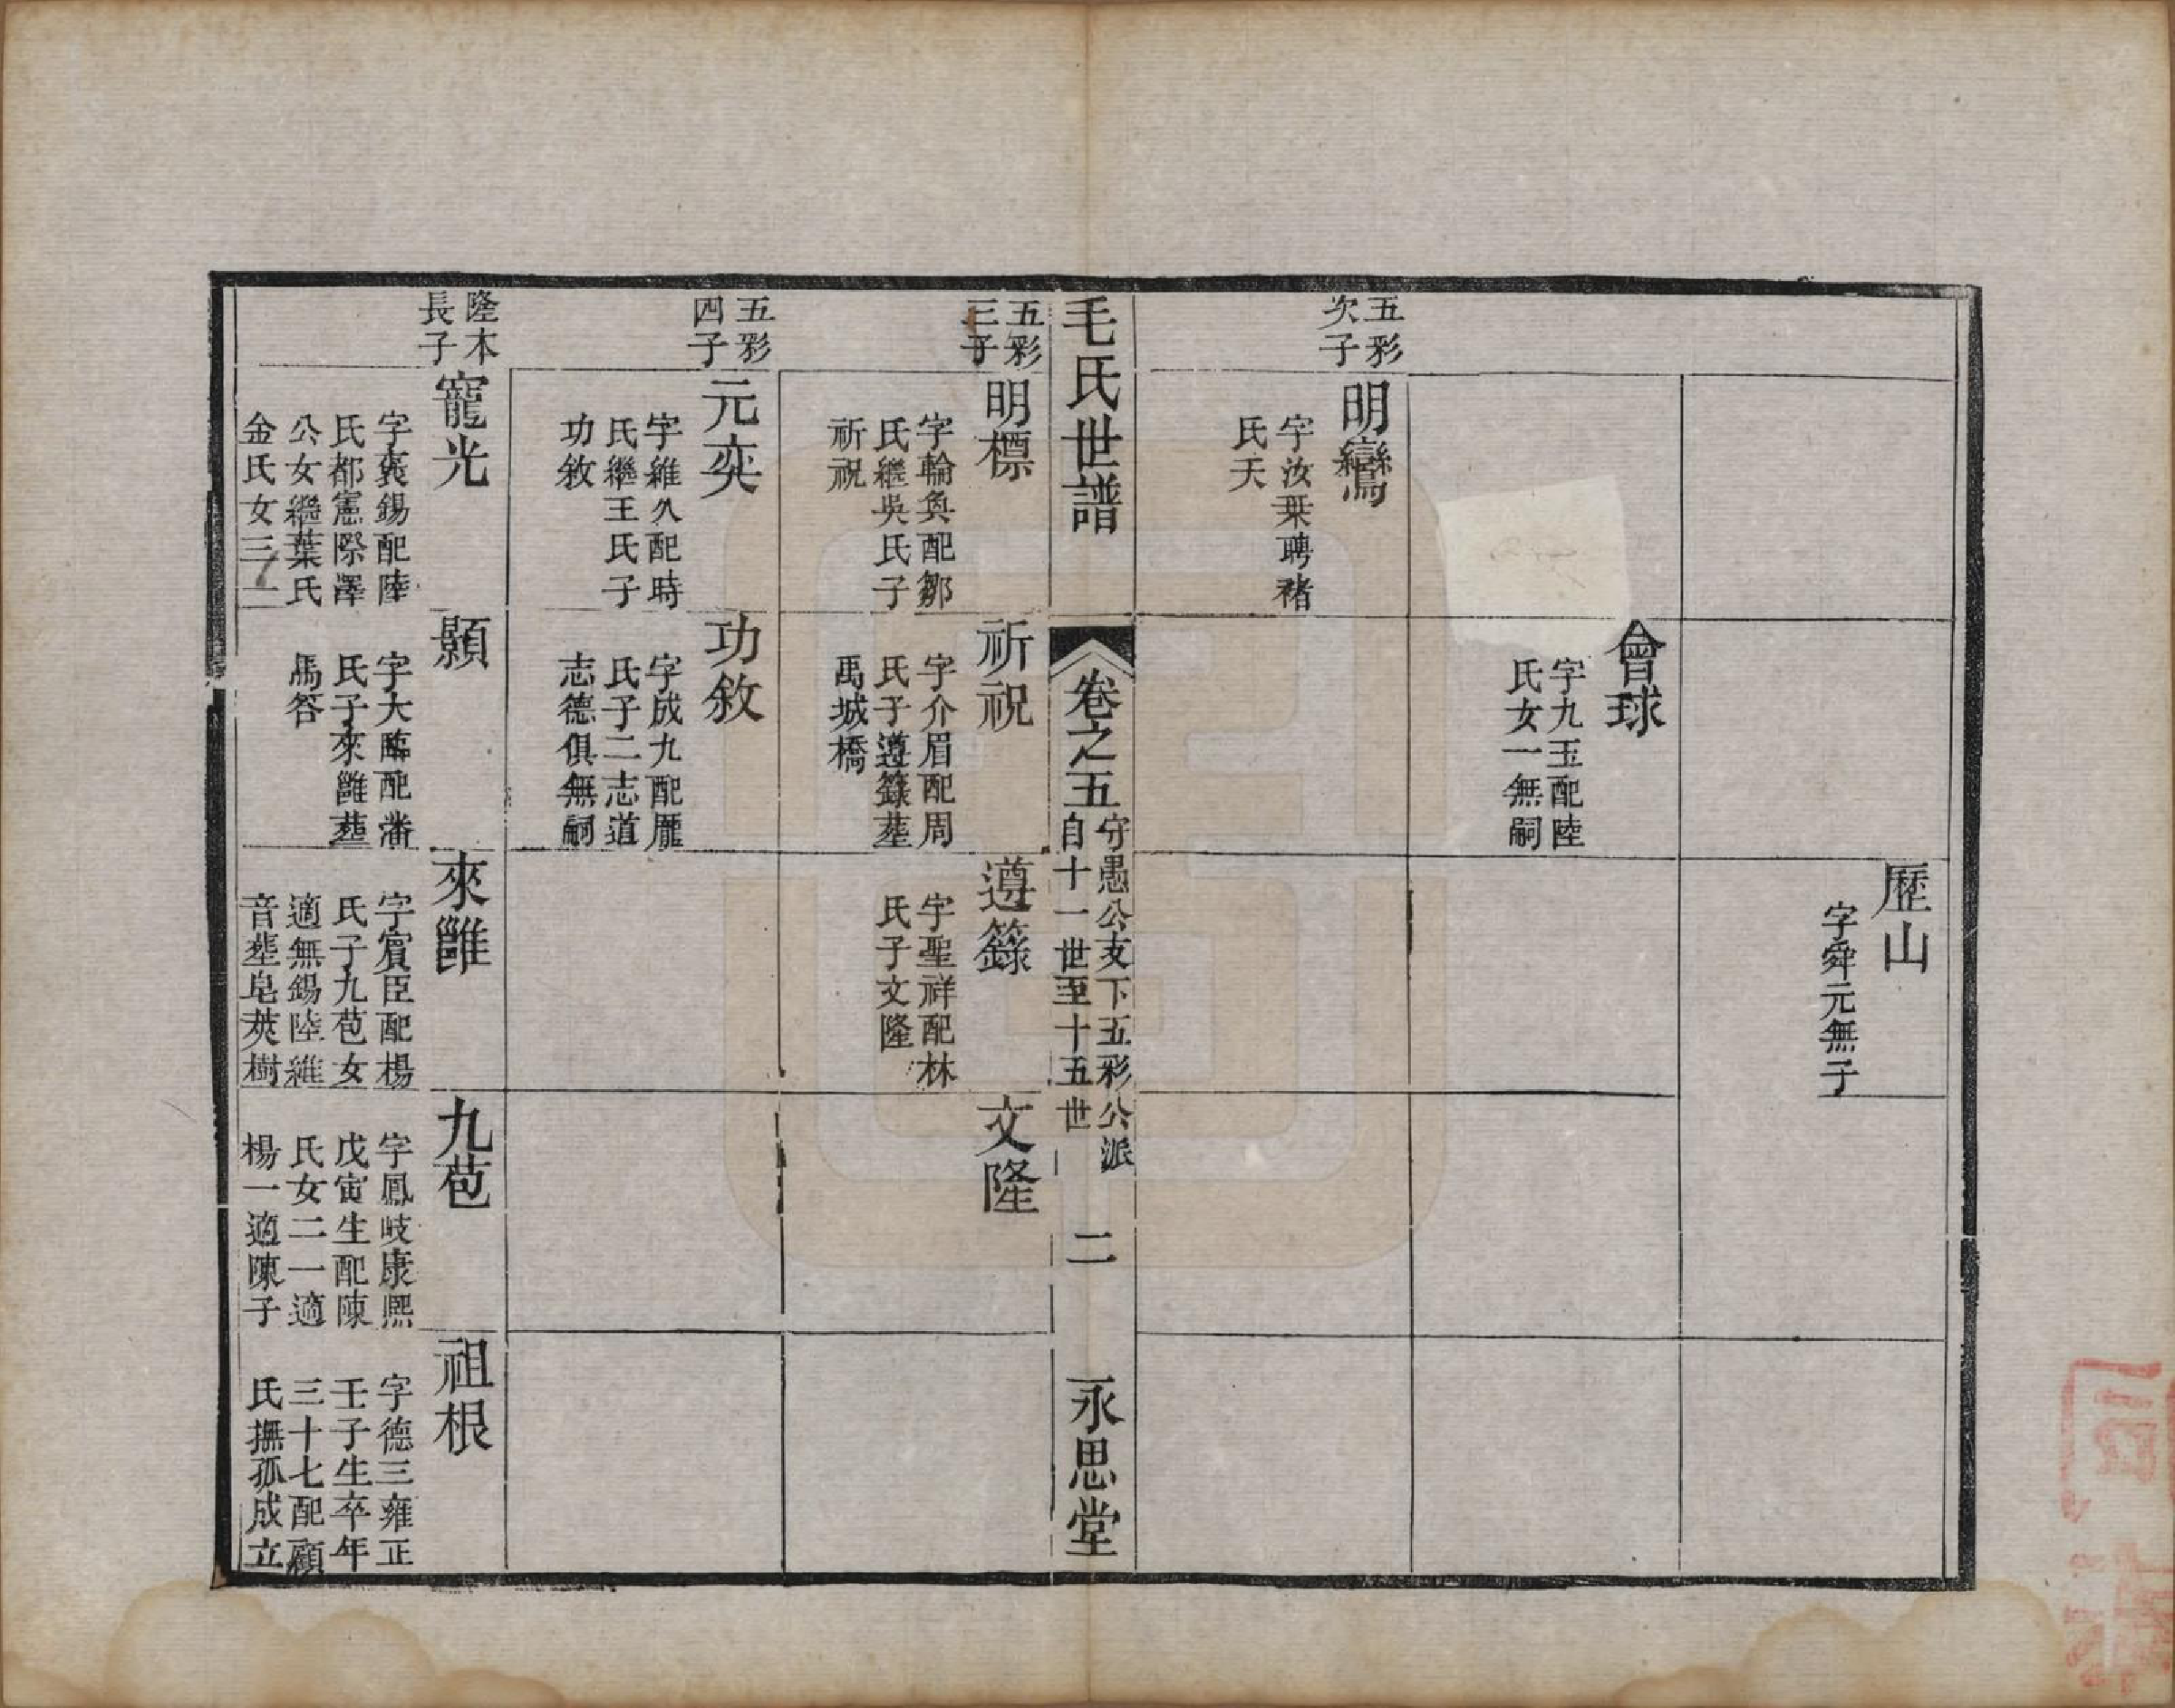 歷山
字舜元無子
會球
字九玉配陸
氏女一無嗣
五彩
次子
明鸞
字汝栞聘褚
氏夭
毛氏世譜
卷之五
守愚公支下五彩公派
自十一世至十五世
二
永思堂
五彩
三子
明標
字輪奐配鄒
氏繼吳氏子
祈祝
祈祝
字介眉配周
氏子遵籙塟
禹城橋
遵籙
字聖祥配林
氏子文隆
文隆
五彩
四子
元奕
字維久配時
氏繼王氏子
功敘
功敘
字成九配龐
氏子二志道
志德俱無嗣
隆本
長子
寵光
字褱錫配陸
氏都憲際澤
公女繼葉氏
金氏女三
顥
字大臨配潘
氏子來雝塟
馬答
來雝
字賓臣配楊
氏子九苞女
適無錫陸維
音塟皂莢樹
九苞
字鳳岐康熙
戊寅生配陳
氏女二一適
楊一適陳子
祖根
字德三雍正
壬子生卒年
三十七配顧
氏撫孤成立